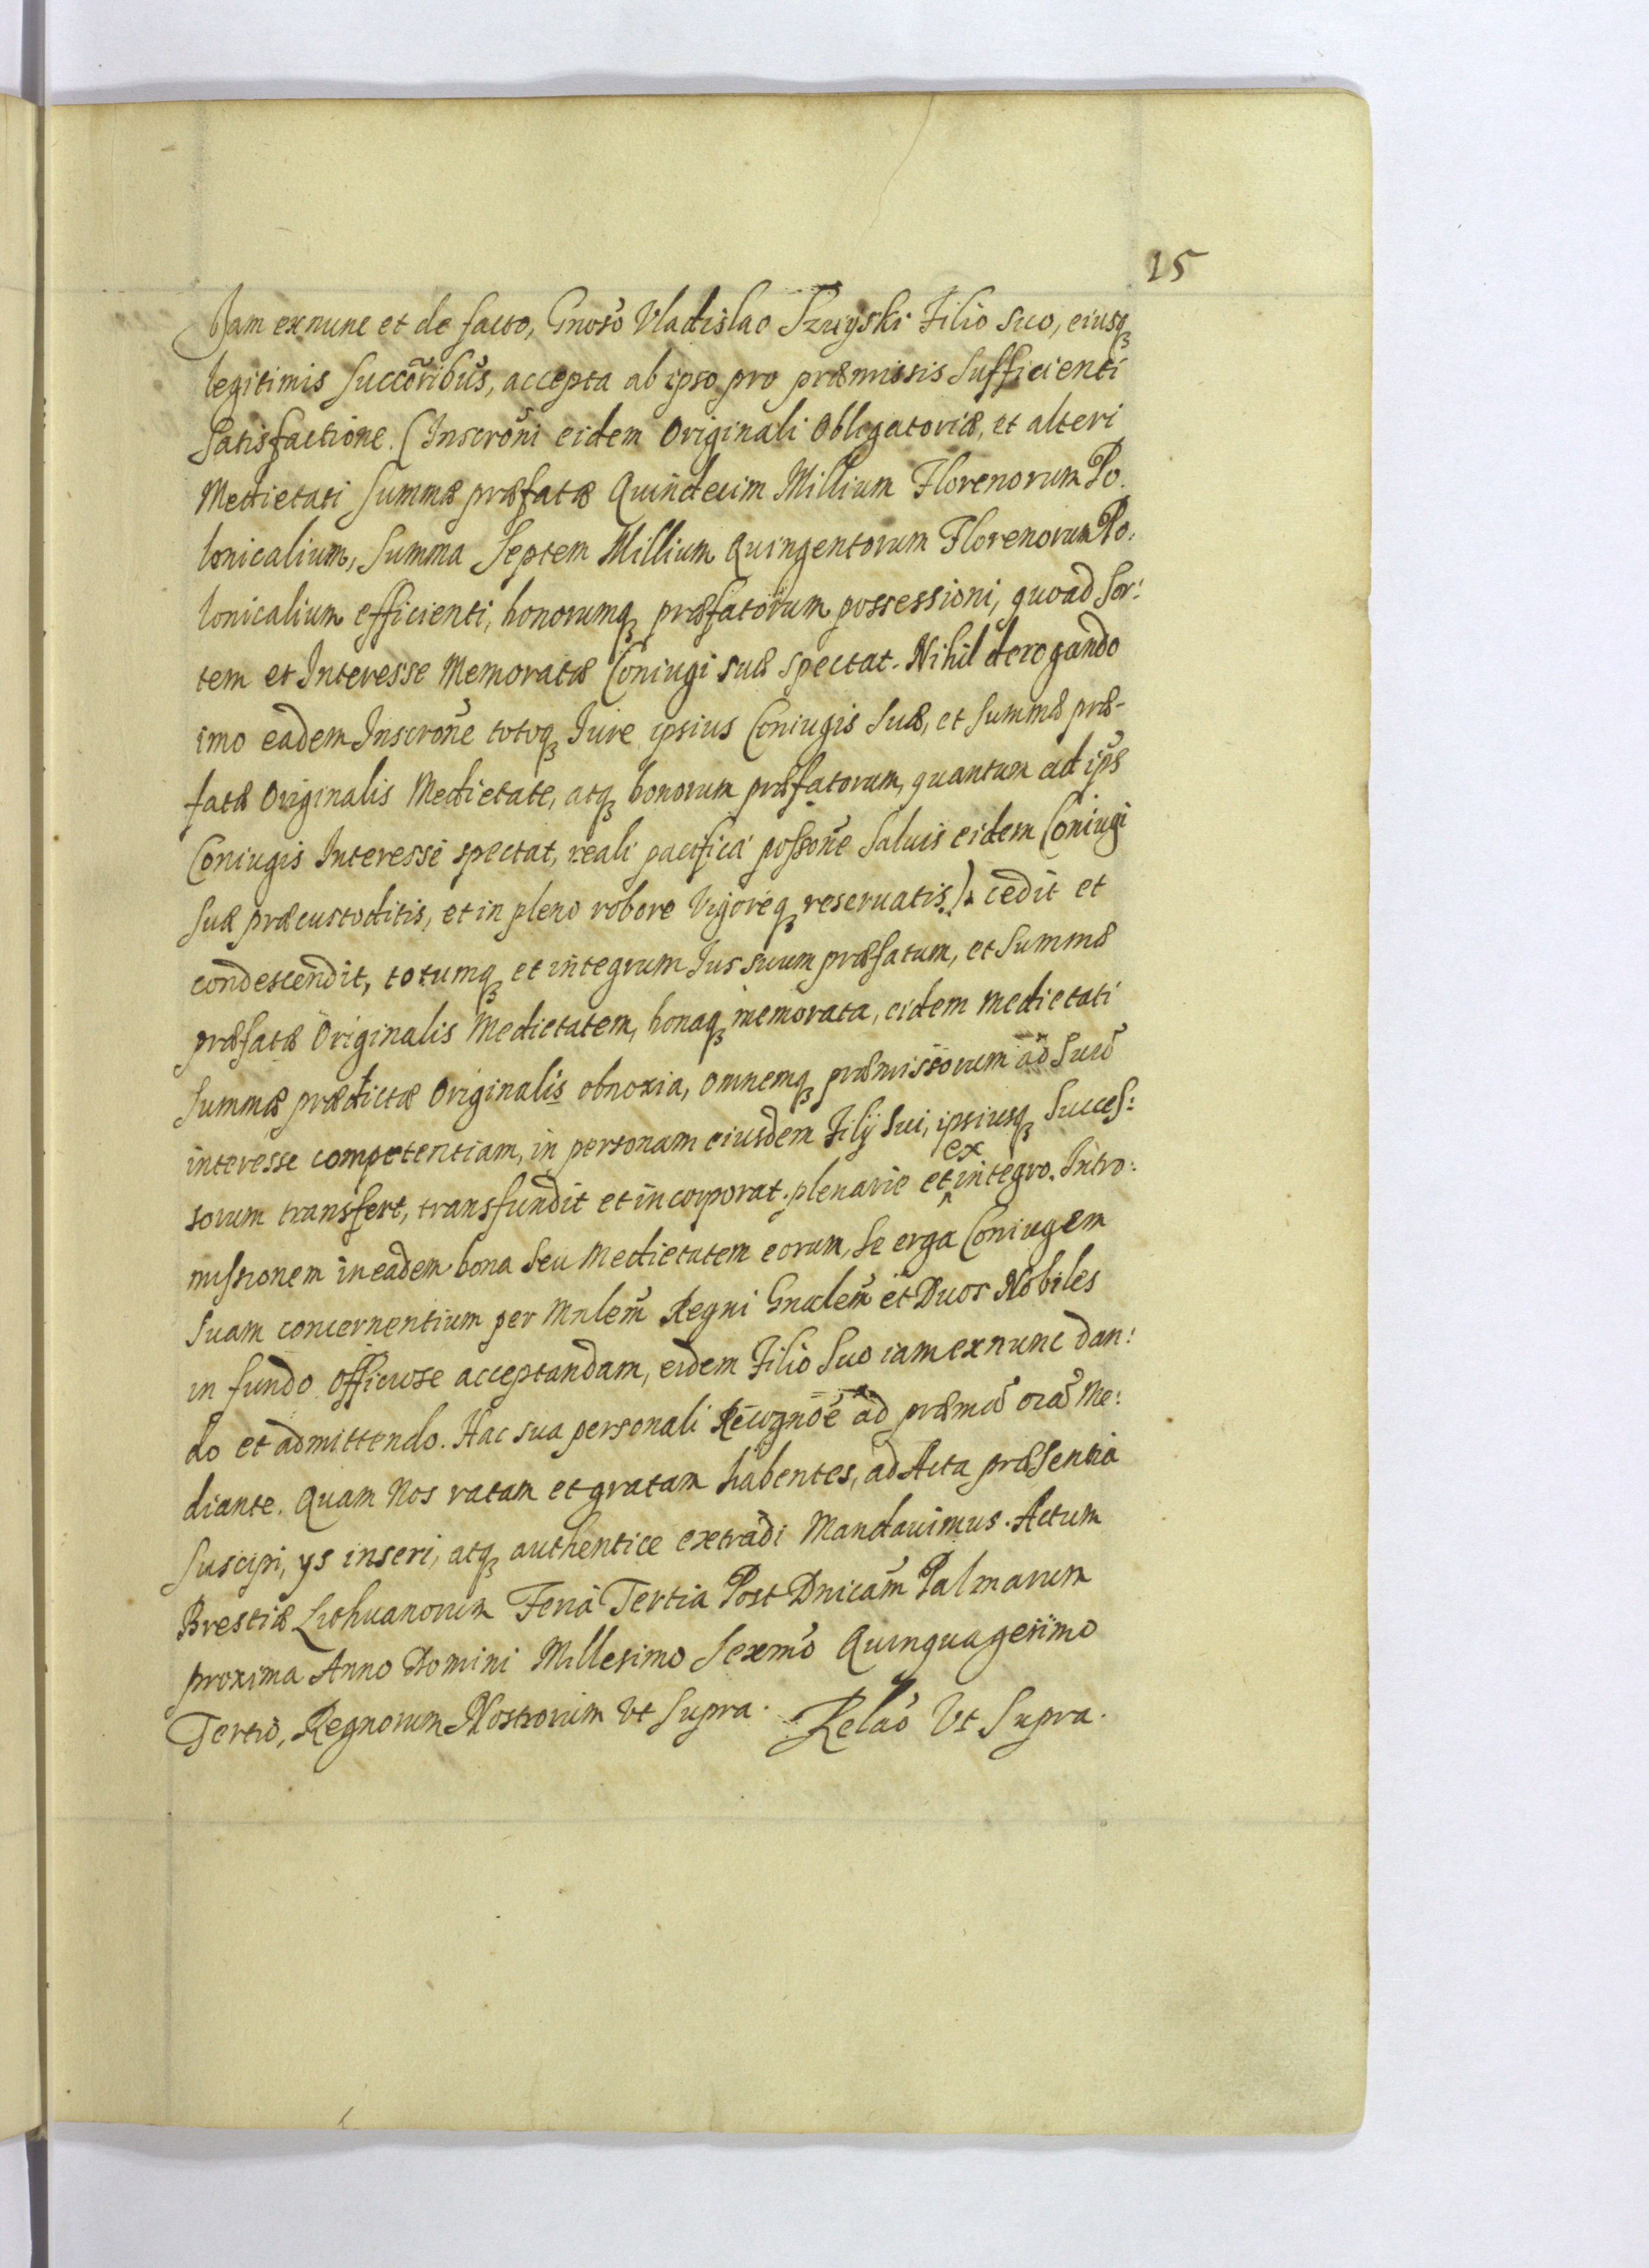 15
Jam exnunc et de facto, Gnoso Vladislao Szuyski Filio suo, eiusq
legitimis succoribus, accepta ab ipso pro præmissis sufficienti
satisfactione. (Inscroni eidem Originali Obligatoriæ, et alteri
Medietati summæ præfatæ Quindecim Millium Florenorum Po.
lonicalium, summa septem Millium Quingentorum Florenorum Po.
lonicalium efficienti, bonorumq præfatorum possessioni, quoad sor:
tem et Interesse Memoratæ Coniugi suæ spectat. Nihil derogando
imo eadem Inscrone totoq Iure ipsius Coniugis suæ, et summæ præ-
fatæ Originalis Medietate, atq bonorum præfatorum, quantum ad ips
Coniugis Interesse spectat, reali pacifica possone saluis eidem Coniugi
suæ præcustoditis, et in pleno robore Vigoreq reseruatis). cedit et
condescendit, totumq et integrum Jus suum præfatum, et summæ
præfatæ Originalis Medietatem, bonaq memorata, eidem medietati
summæ prædictæ Originalis obnoxia, omnemq præmissorum ad suu
interesse competentiam, in personam eiusdem Filij sui, ipsiusq succes:
sorum transfert, transfundit et incorporat. plenarie et ex integro. Intro:
missionem in eadem bona seu Medietatem eorum, se erga Coniugem
suam concernentium per Mnlem Regni Gnalem et Duos Nobiles
in fundo officiose acceptandam, eidem Filio suo iam exnunc dan:
do et admittendo. Hac sua personali Recognoe ad præma oia Me:
diante. Quam Nos ratam et gratam habentes, ad Acta præsentia
suscipi, ys inseri, atq authentice extradi Mandauimus. Actum
Brestiæ Lithuanorum Feria Tertia Post Dnicam Palmarum
proxima Anno Domini Millesimo sexmo Quinquagesimo
Tertio, Regnorum Nostrorum Vt supra. Relao Vt supra.